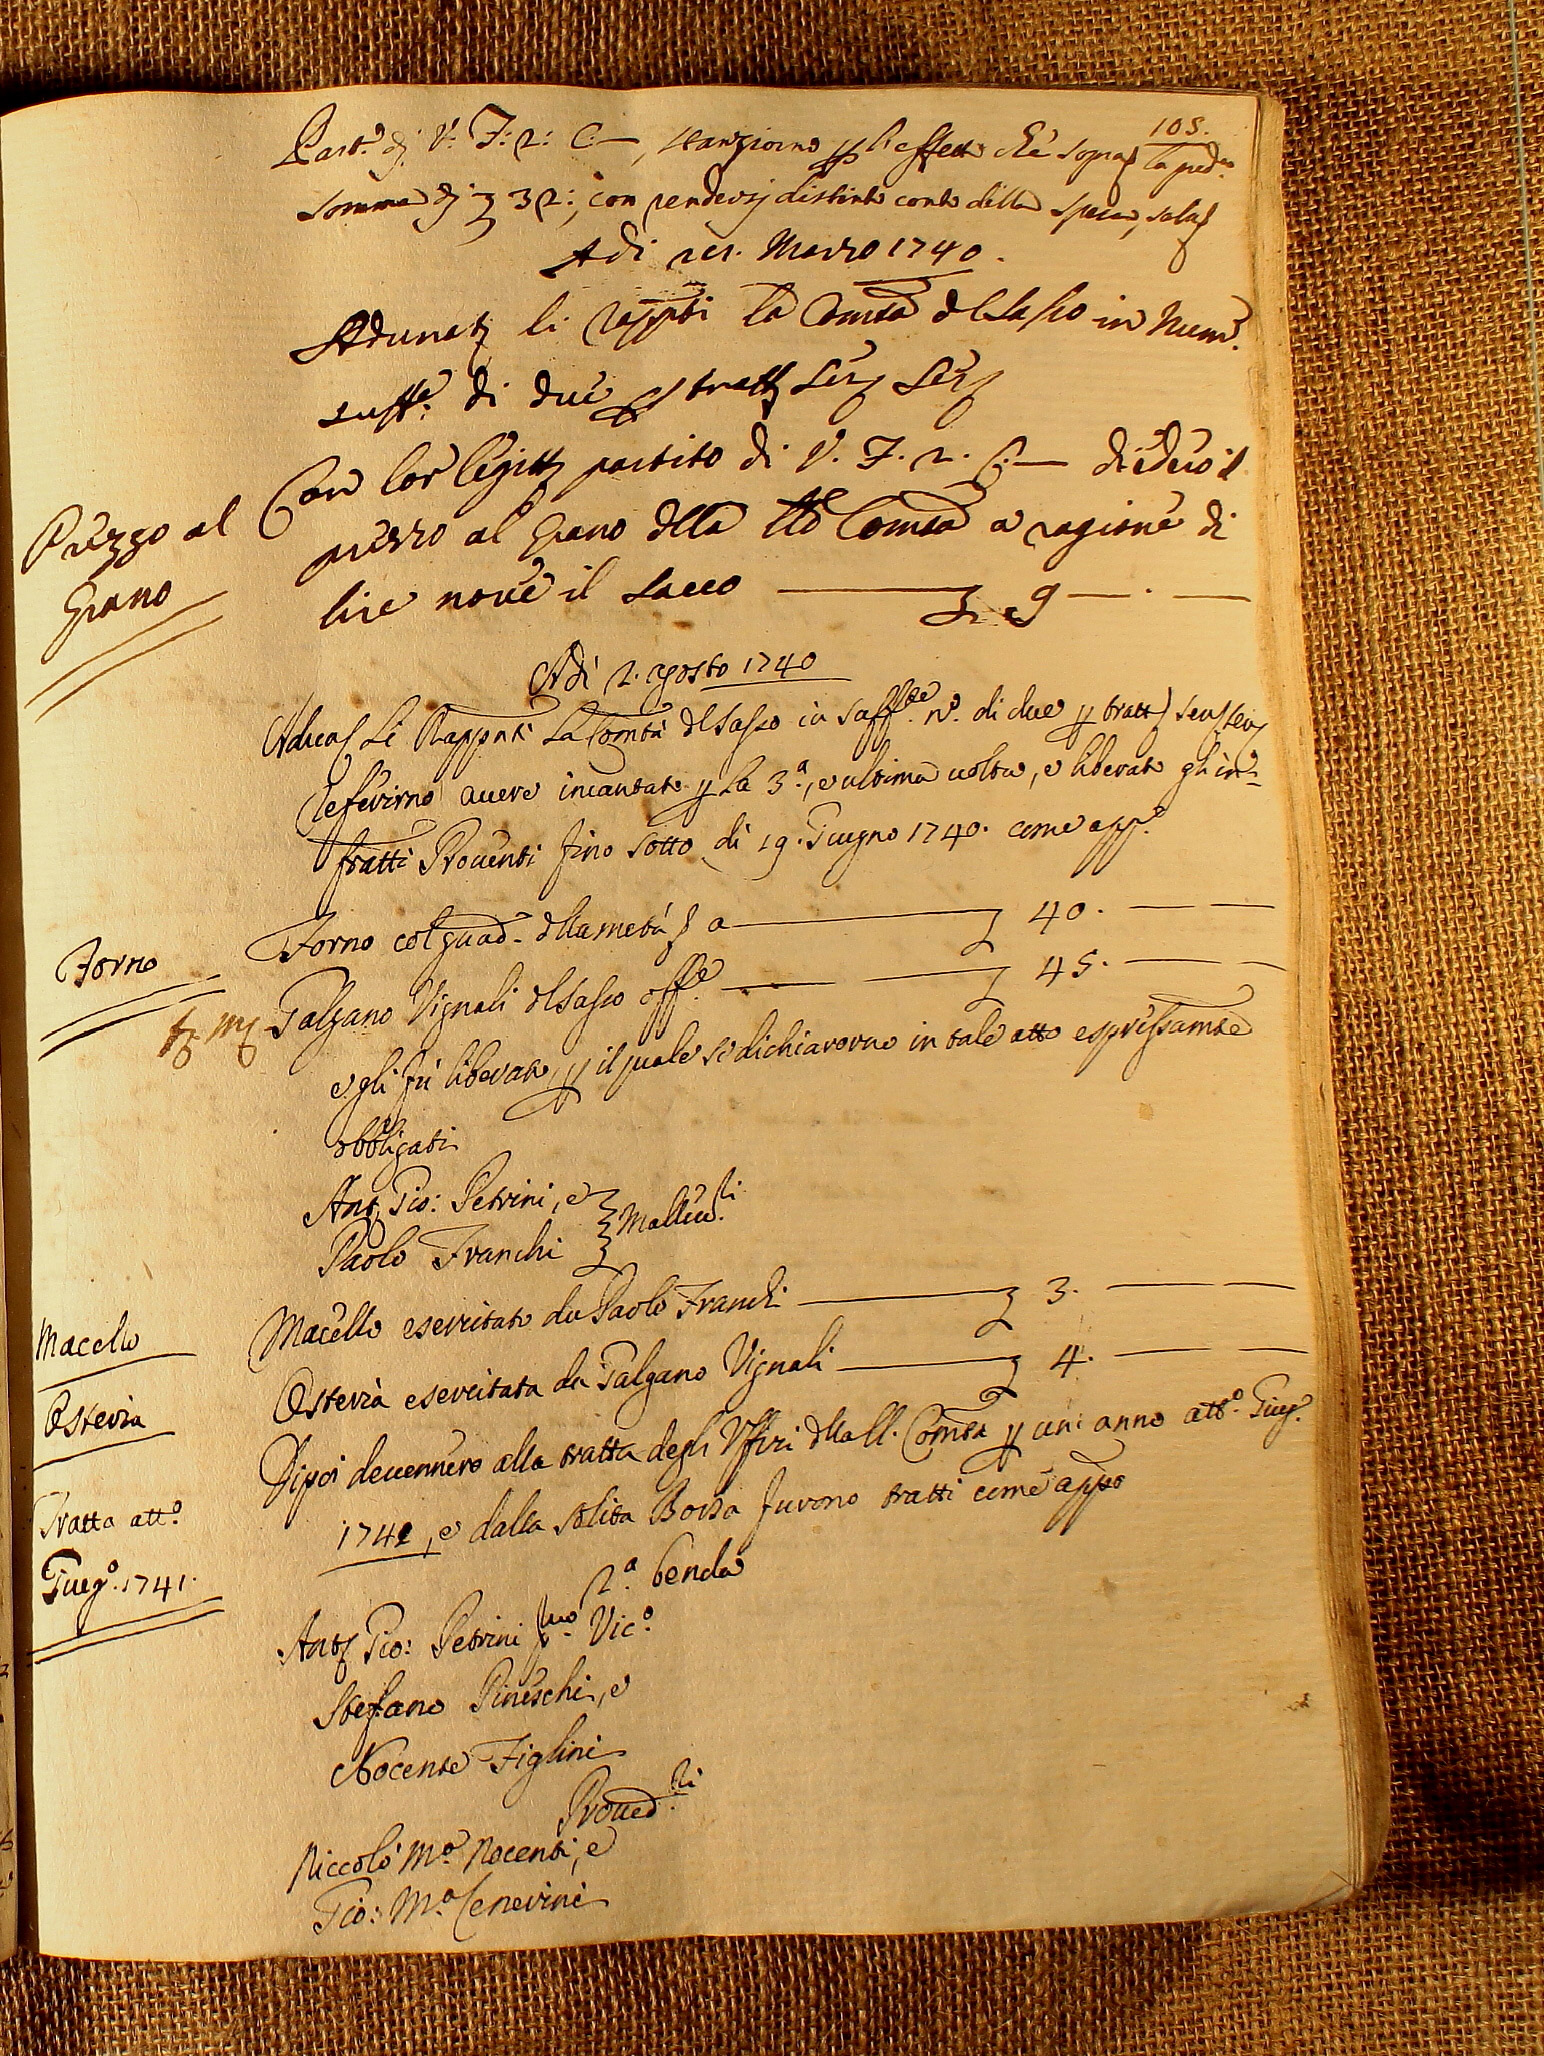 105.
Part.º di V: F: 2: C:—, stanziorno p l'effetto che sopra la pred.ª
somma di 32:, con rendersi distinto conto della spesa, salo
Adi 21. Marzo 1740.
Adunati li Rapp.ti la Comtà del Sasso in Num.º
suff.e di due p tratti
Con lor legit.º partito di V. F. 2. C.— diedero il
Prezzo al
Grano
prezzo al Grano della tto Comtà a ragione di
lire nove il sacco 9 — . —
Adi 2. Agosto 1740
Li Rappnti La Comtà del Sasso in suff.te n.º di due p tratti
Referirno avere incantato p la 3.ª, e ultima volta, e liberato gli in-
fratti Proventi fino sotto di 19. Giugno 1740. come app.º
Forno
Forno col guad. della metà a — 40. — —
Galgano Vignali del Sasso off.e — 45. — —
e gli fu liberato, p il quale si dichiarorno in tale atto espressamte
obbligati
Ant.º Gio: Petrini, e
Paolo Franchi
Mallev.ri
Macello
Macello esercitato da Paolo Franchi — 3. — —
Osteria
Osteria esercitata da Galgano Vignali — 4. — —
Dipoi devennero alla tratta degli Uffizi della ll. Comtà p un anno att.º Giug.º
Tratta att.º
Giug.º 1741.
1741, e dalla solita Borsa furono tratti come appo
2.ª benda
Ant.º Gio: Petrini p.mo Vic.º
Stefano Pineschi, e
Nocente Figlini
Proved.ri
Niccolò M.ª Nocenti, e
Gio: M.ª Cenerini